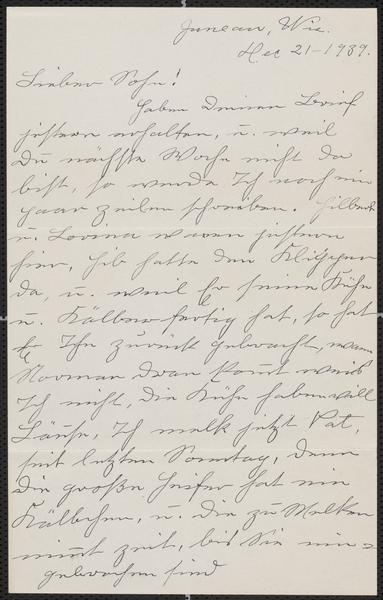 Juneau, Wis.
Dec 21-1939.
Lieber Sohn!
Haben Deinen Brief
gestern erhalten, u. weil
Du nächste Woche nicht da
bist, so werde Ich noch ein
paar zeilen schreiben. Gilbert
u. Lorina waren gestern
hier, Gib hatte den Klipper
da, u. weil Er seine Kühe
u. Kälber fertig hat, so hat
Er Ihn zurück gebracht, wann
Norman dran kommt weis
Ich nicht, die Kühe haben voll
Läuse, Ich melk jetzt Pat,
seit letzten Sonntag, denn
die große Heifer hat ein
Kälbchen, u. die zu Melken
nimmt zeit, bis Sie ein=
gebrochen sind